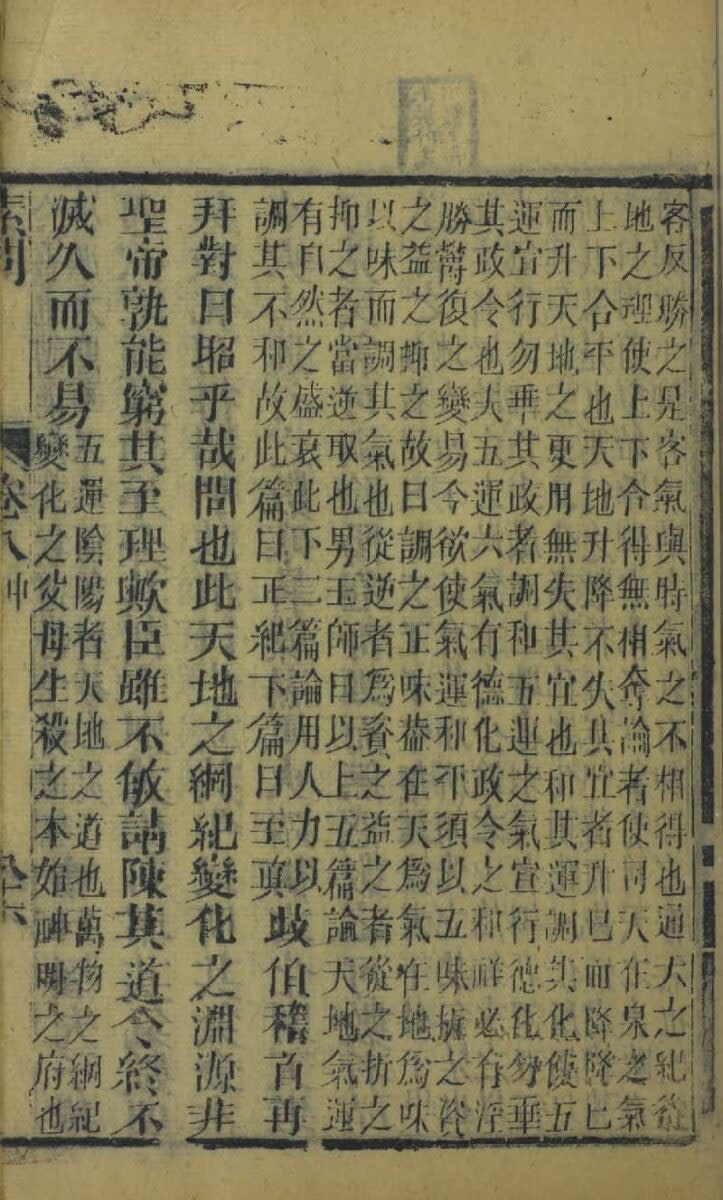 客反勝之是客氣與時氣之不相得也通天之紀從
地之理使上下合得無相奪論者使司天在泉之氣
上下合平也天地升降不失其宜者升巳而降降巳
而升天地之更用無失其宜也和其運調其化使五
運宣行勿乖其政者調和五運之氣宣行德化勿乖
其政令也夫五運六氣有德化政令之和祥必有淫
勝鬱復之變易今欲使氣運和平須以五味之資
之益之抑之故曰調之正味葢在天爲氣在地爲味
以味而調其氣也從逆者爲資之益之者從之折之
抑之者當逆取也男玉師曰以上五篇論天地氣運
有自然之盛衰此下二篇論用人力以
調其不和故此篇曰正紀下篇曰至眞
岐伯稽首再
拜對曰昭乎哉問也此天地之綱紀變化之淵源非
聖帝孰能窮其至理歟臣雖不敏請陳其道令終不
滅久而不易
五運陰陽者天地之道也萬物之綱紀
變化之父母生殺之本始神明之府也
素問 卷八中